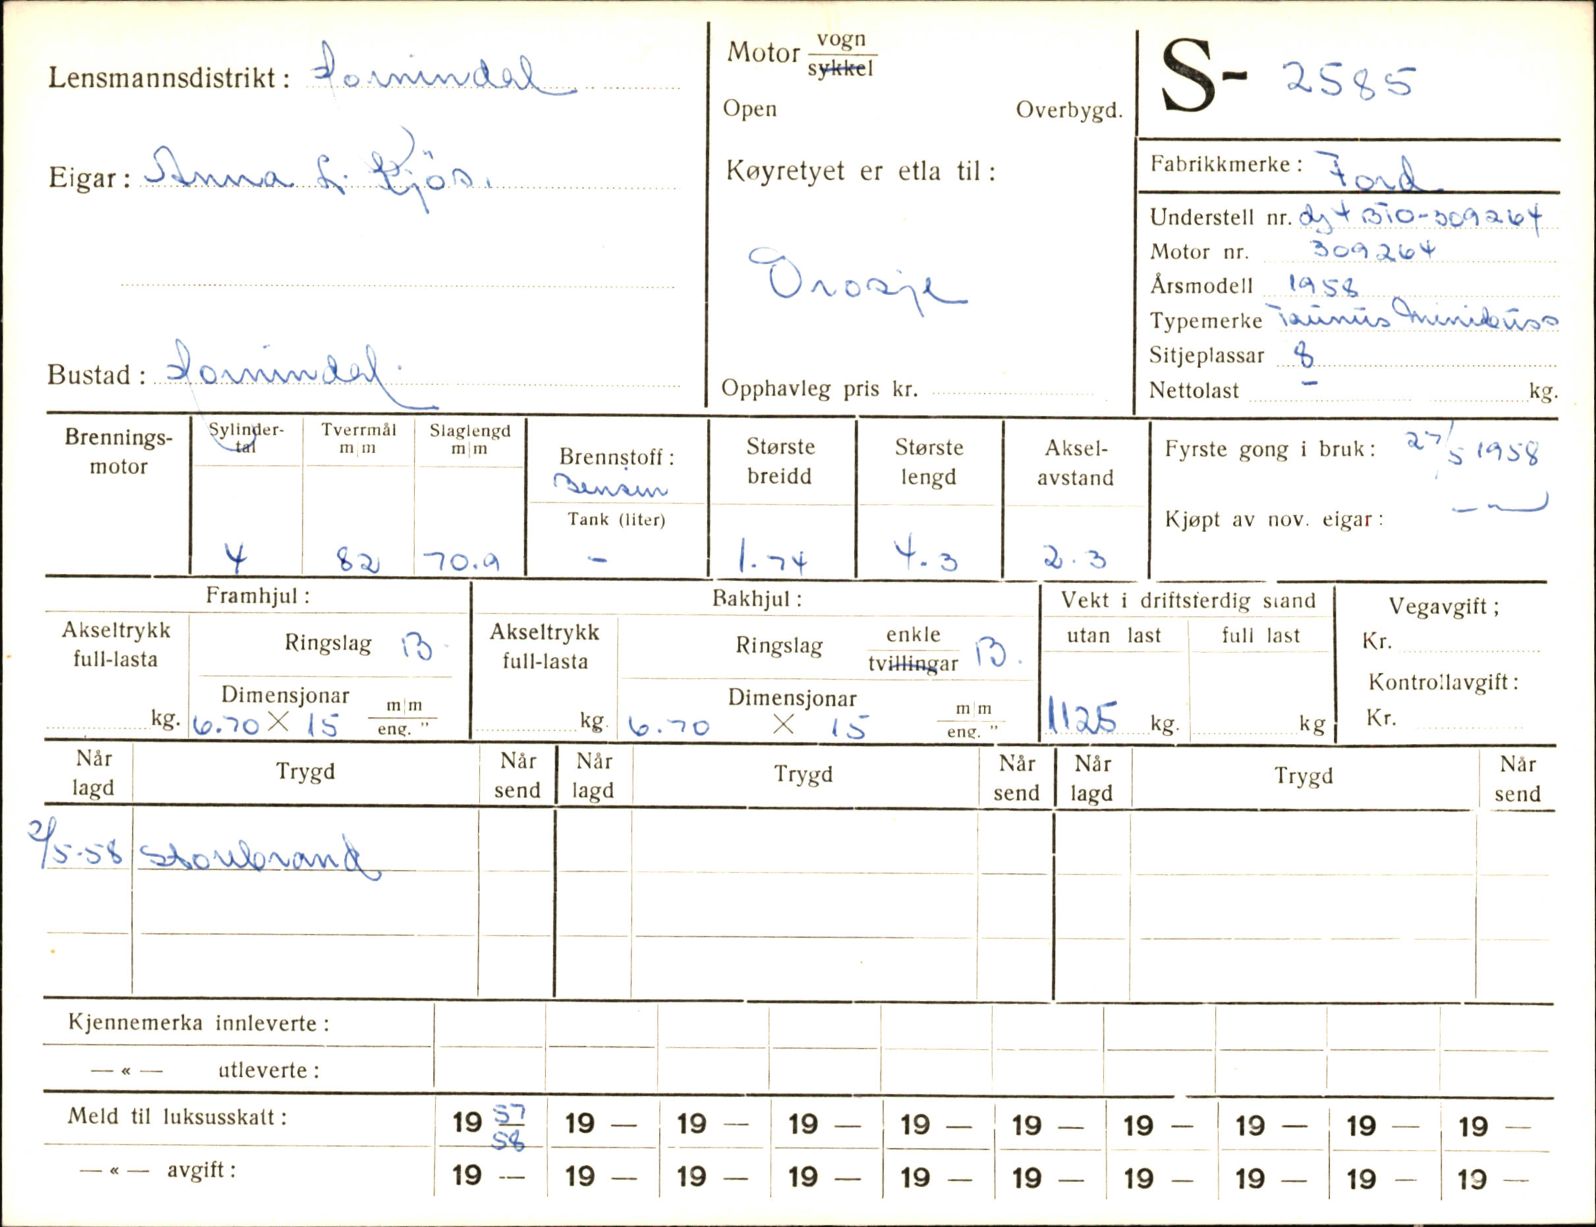 Lensmannsdistrikt: Hornindal
Eigar: Anna L. Kjös.
Bustad: Hornindal.
Motor vogn
sykkel
Open Overbygd.
Køyretyet er etla til:
Drosje
Opphavleg pris kr.
S- 2585
Fabrikkmerke: Ford
Understell nr. BTO-309264
Motor nr. 309264
Årsmodell 1958
Typemerke Taunus Minibuss
Sitjeplassar 8
Nettolast - kg.
Brennings-
motor
Sylinder-
tal
4
Tverrmål
m|m
82
Slaglengd
m|m
70.9
Brennstoff:
Bensin
Tank (liter)
-
Største
breidd
1.74
Største
lengd
4.3
Aksel-
avstand
2.3
Fyrste gong i bruk: 27/5 1958
Kjøpt av nov. eigar: -"-
Framhjul:
Akseltrykk
full-lasta
kg.
Ringslag B.
Dimensjonar m|m
6.70 X 15 eng. "
Bakhjul:
Akseltrykk
full-lasta
kg.
Ringslag enkle
tvillingar B.
Dimensjonar m|m
6.70 X 15 eng. "
Vekt i driftsferdig stand
utan last full last
1125 kg. kg
Vegavgift;
Kr.
Kontrollavgift:
Kr.
Når
lagd Trygd Når
send Når
lagd Trygd Når
send Når
lagd Trygd Når
send
2/5-58 Storebrand
Kjennemerka innleverte:
— « — utleverte:
Meld til luksusskatt: 19 57/58 19 — 19 — 19 — 19 — 19 — 19 — 19 — 19 — 19 —
— « — avgift: 19 — 19 — 19 — 19 — 19 — 19 — 19 — 19 — 19 — 19 —